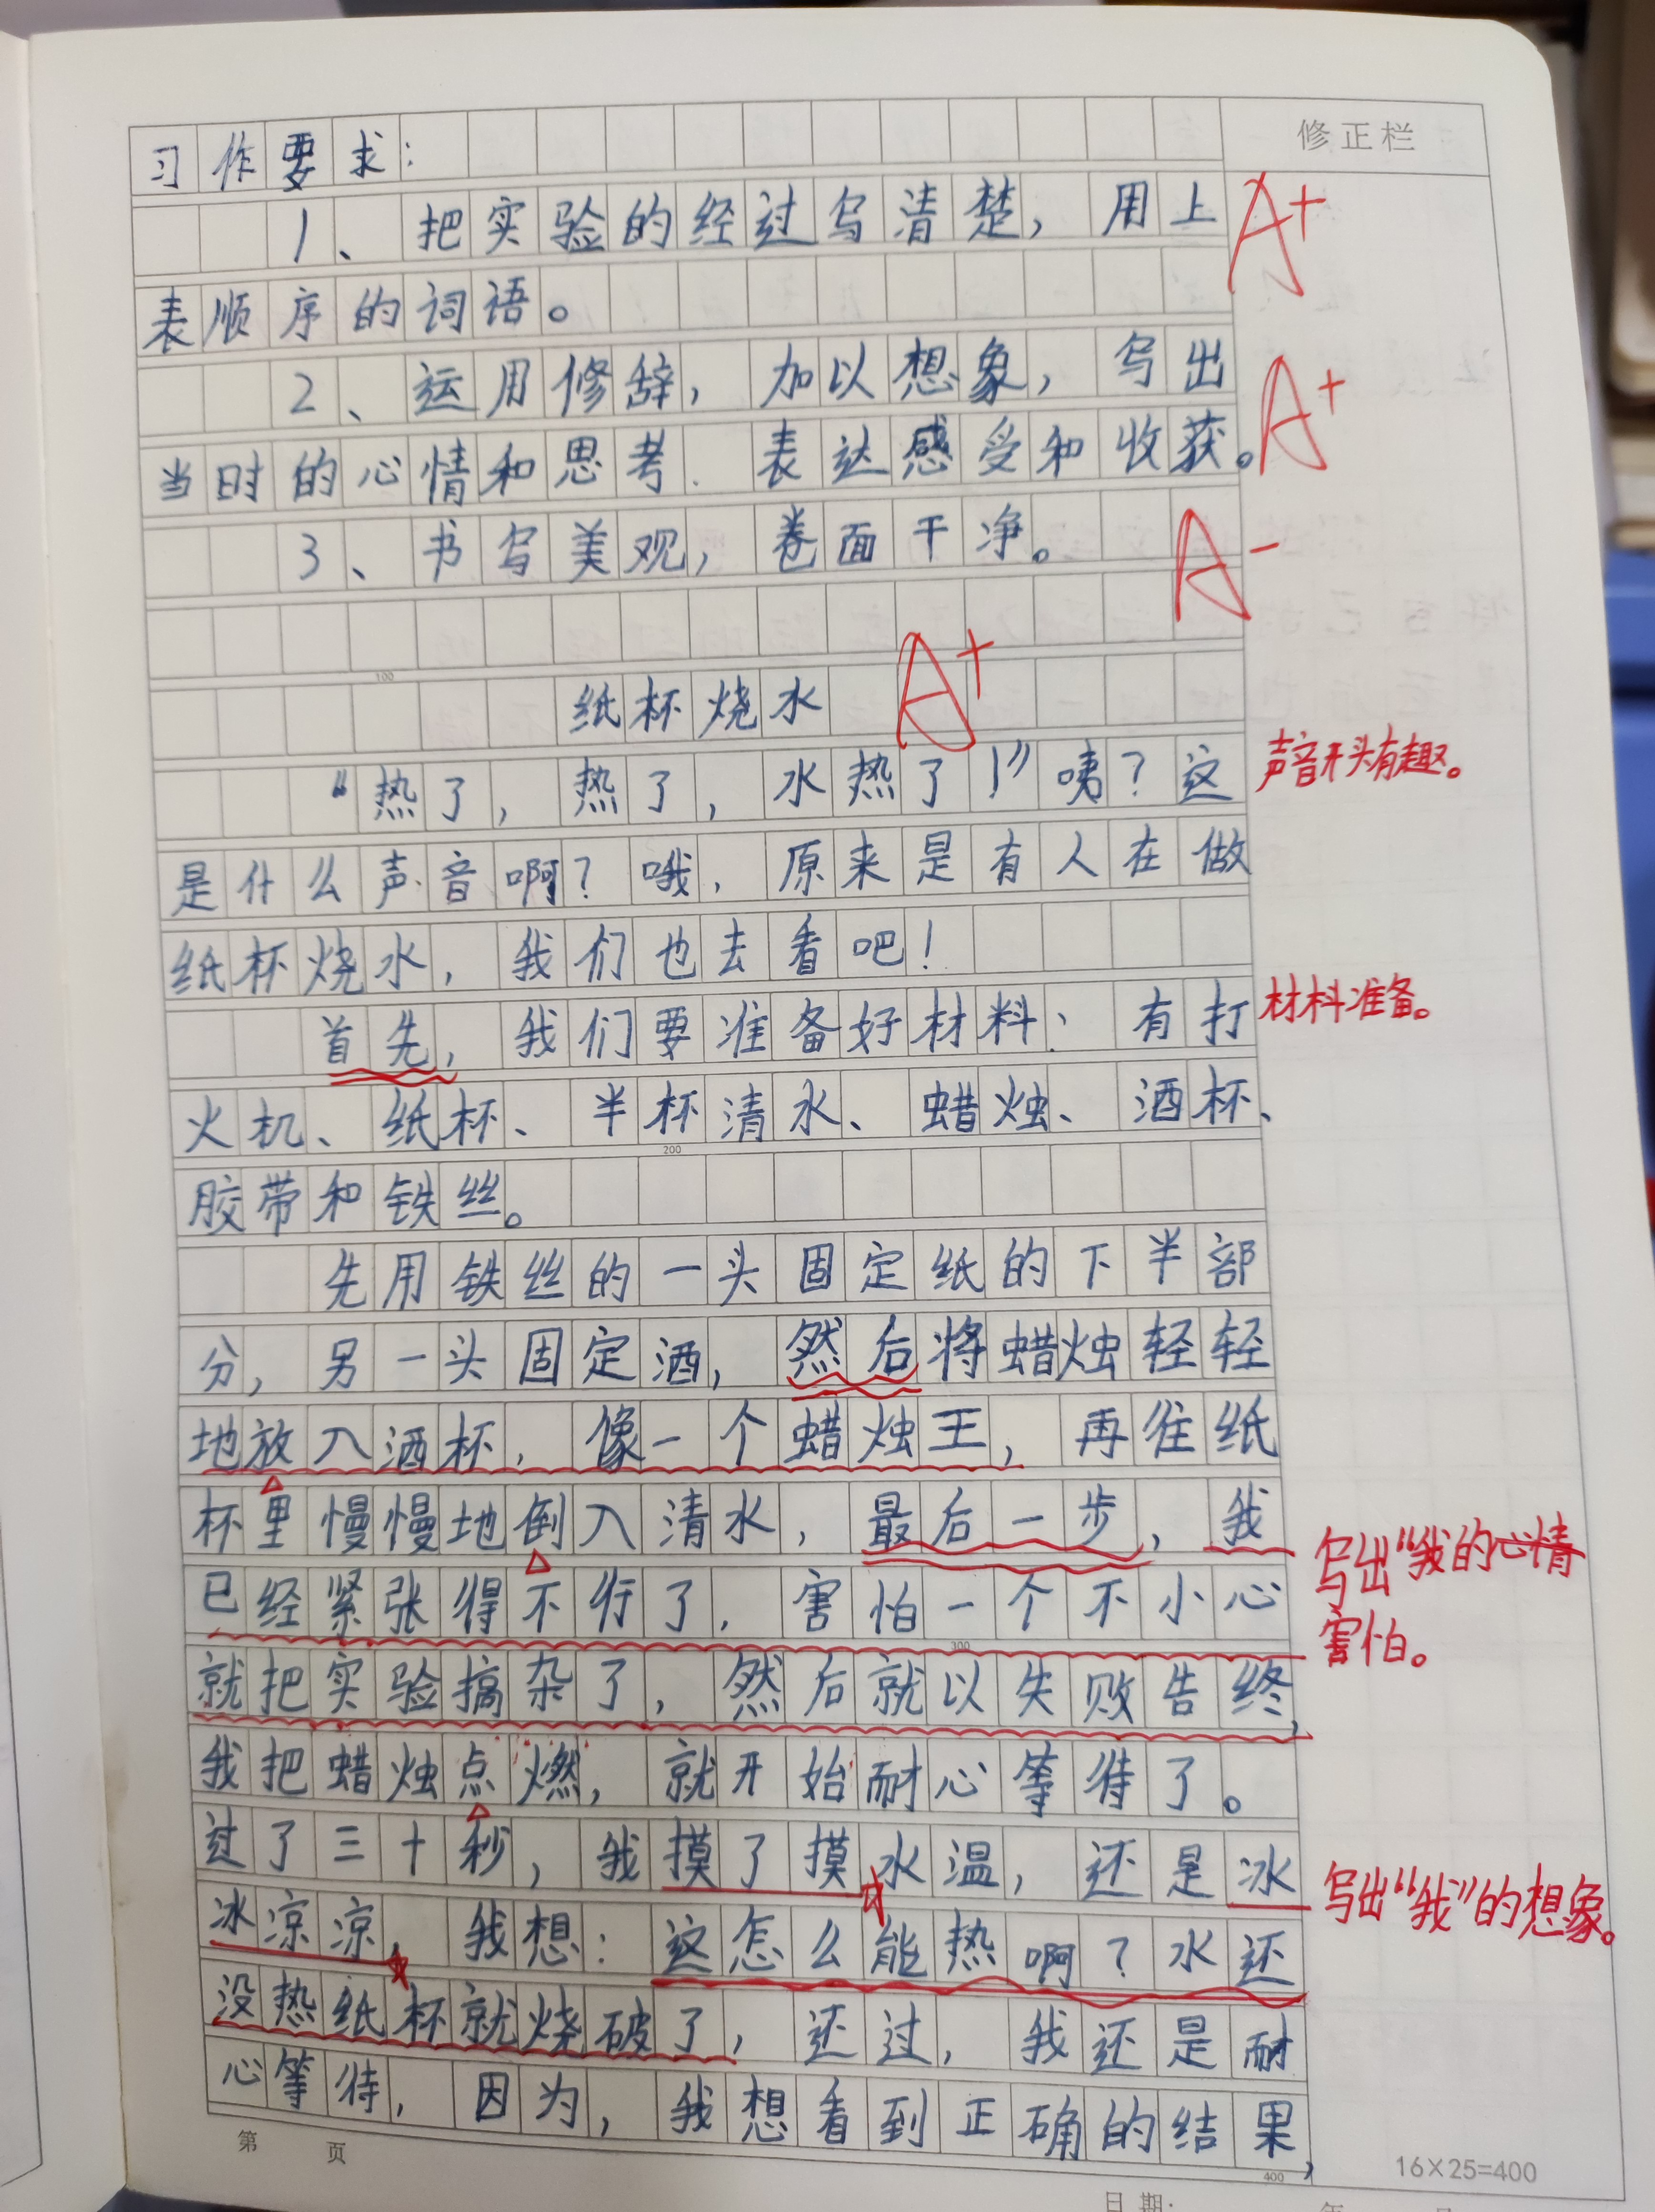 修正栏
习作要求：
1、把实验的经过写清楚，用上 A+
表顺序的词语。
2、运用修辞，加以想象，写出 A+
当时的心情和思考．表达感受和收获。
3、书写美观，卷面干净。 A-
100
纸杯烧水 A+
“热了，热了，水热了！”咦？这 声音开头有趣。
是什么声音啊？哦，原来是有人在做
纸杯烧水，我们也去看吧！
首先，我们要准备好材料：有打 材料准备。
火机、纸杯、半杯清水、蜡烛、酒杯、
200
胶带和铁丝。
先用铁丝的一头固定纸的下半部
分，另一头固定酒，然后将蜡烛轻轻
地放入酒杯，像一个蜡烛王，再往纸
杯里慢慢地倒入清水，最后一步，我 写出“我的心情
已经紧张得不行了，害怕一个不小心 害怕。
300
就把实验搞杂了，然后就以失败告终，
我把蜡烛点燃，就开始耐心等待了。
过了三十秒，我摸了摸水温，还是冰 写出“我”的想象。
冰凉凉，我想：这怎么能热啊？水还
没热纸杯就烧破了，还过，我还是耐
心等待，因为，我想看到正确的结果，
400
第 页
16×25=400
日期：